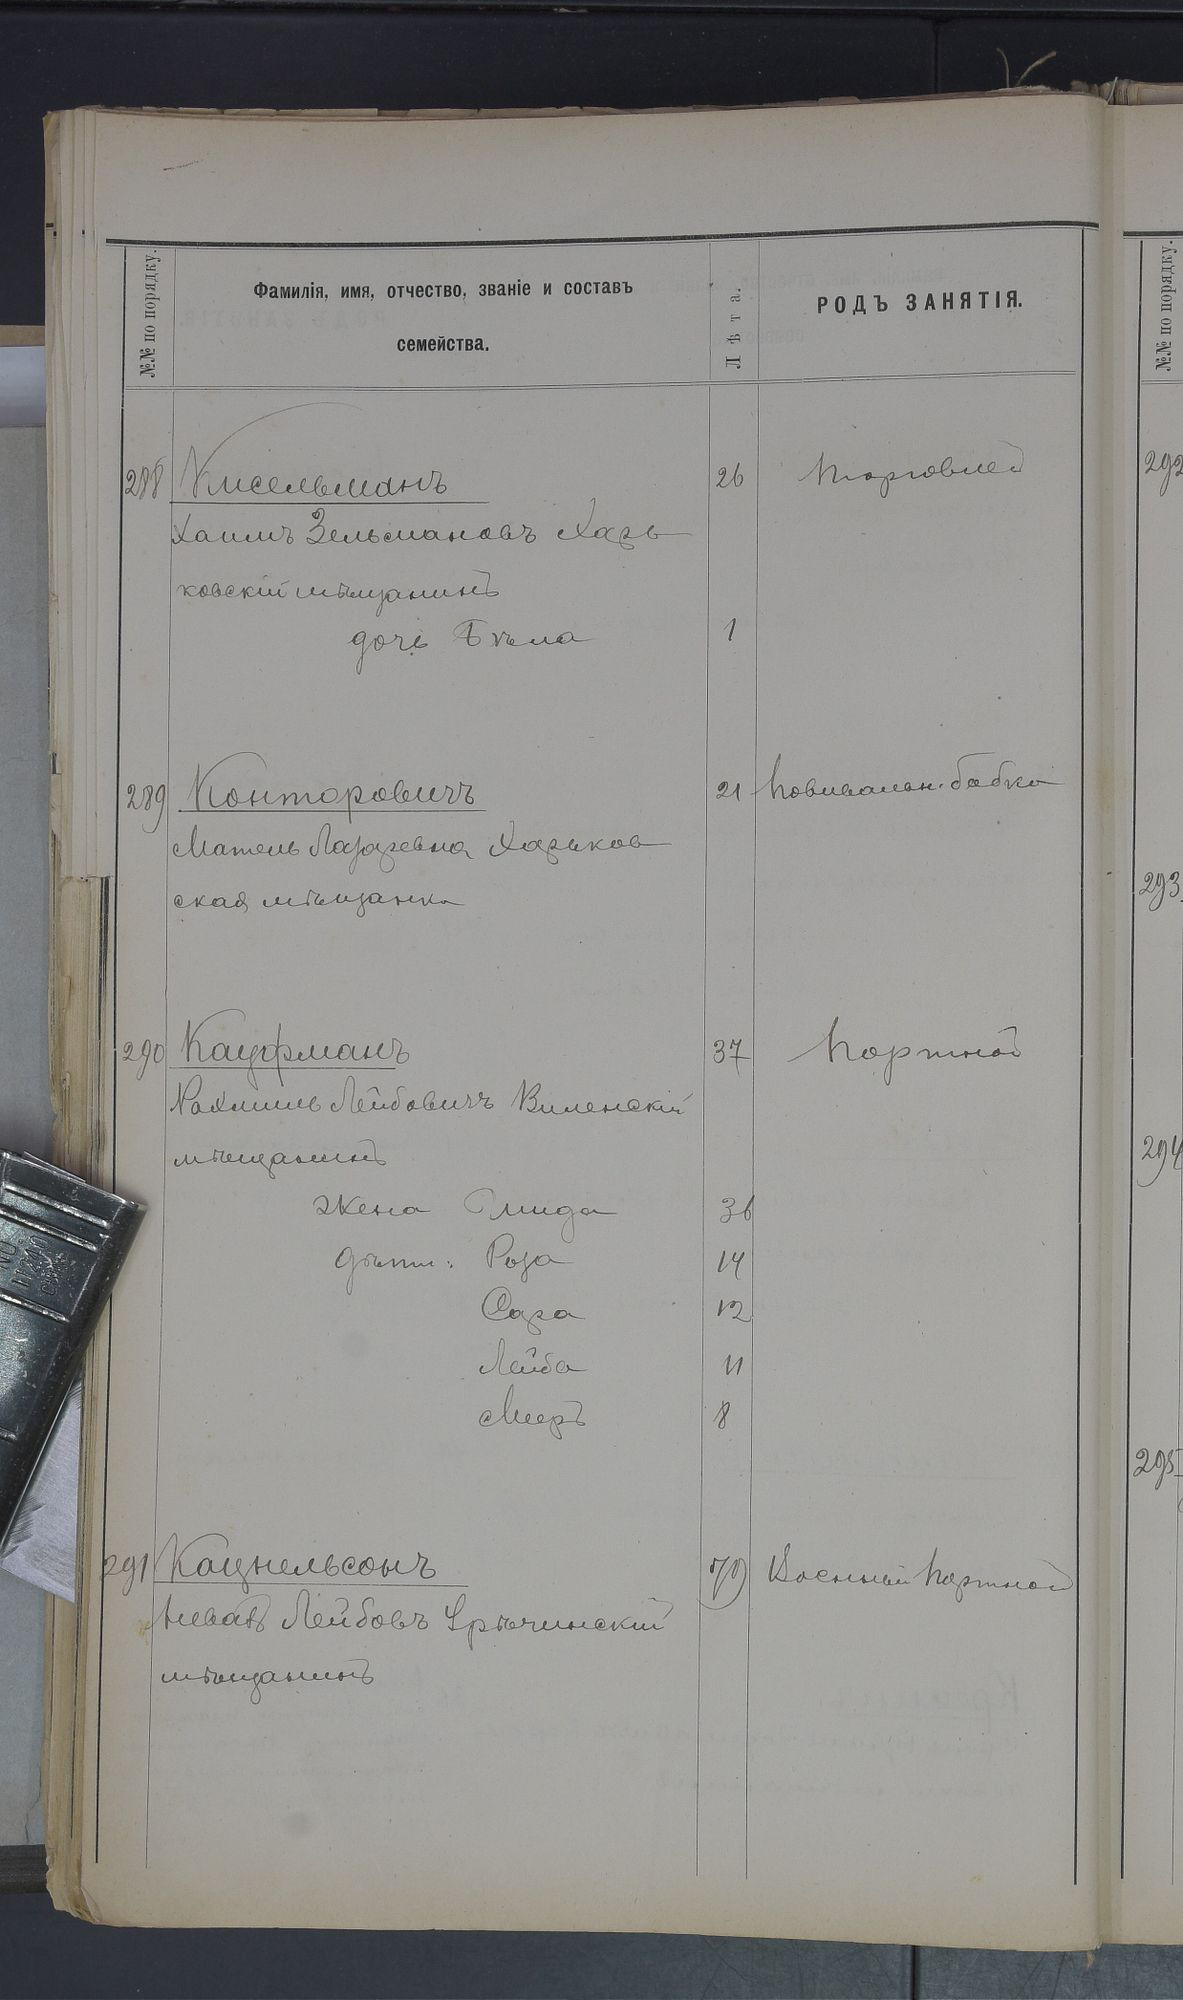 №№ по порядку.
Фамилія, имя, отчество, званіе и составъ
семейства.
Лѣта.
РОДЪ ЗАНЯТІЯ.
№№ по порядку.
288 Кисельманъ 26 торговлей
Хаимъ Зельмановъ Харь
ковскій мѣщанинъ
дочь Бѣла 1
289 Конторовичъ 21 повивальн. бабка
Матель Лазаревна Харьков
ская мѣщанка
290 Кауфманъ 37 портной
Рахмиль Лейбовичъ Виленскій
мѣщанинъ
жена Смида 36
дѣти: Роза 14
Сара 12
Лейба 11
Меръ 8
291 Кацнельсонъ 70 Военный портной
Лейбовъ
мѣщанинъ
292
293
294
295